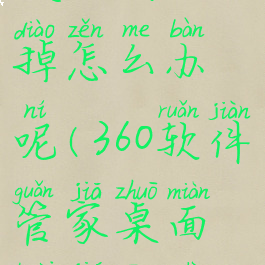 diào zěn me bàn
掉怎么办
ní ruǎn jiàn
呢(360软件
guǎn jiā zhuō miàn
管家桌面